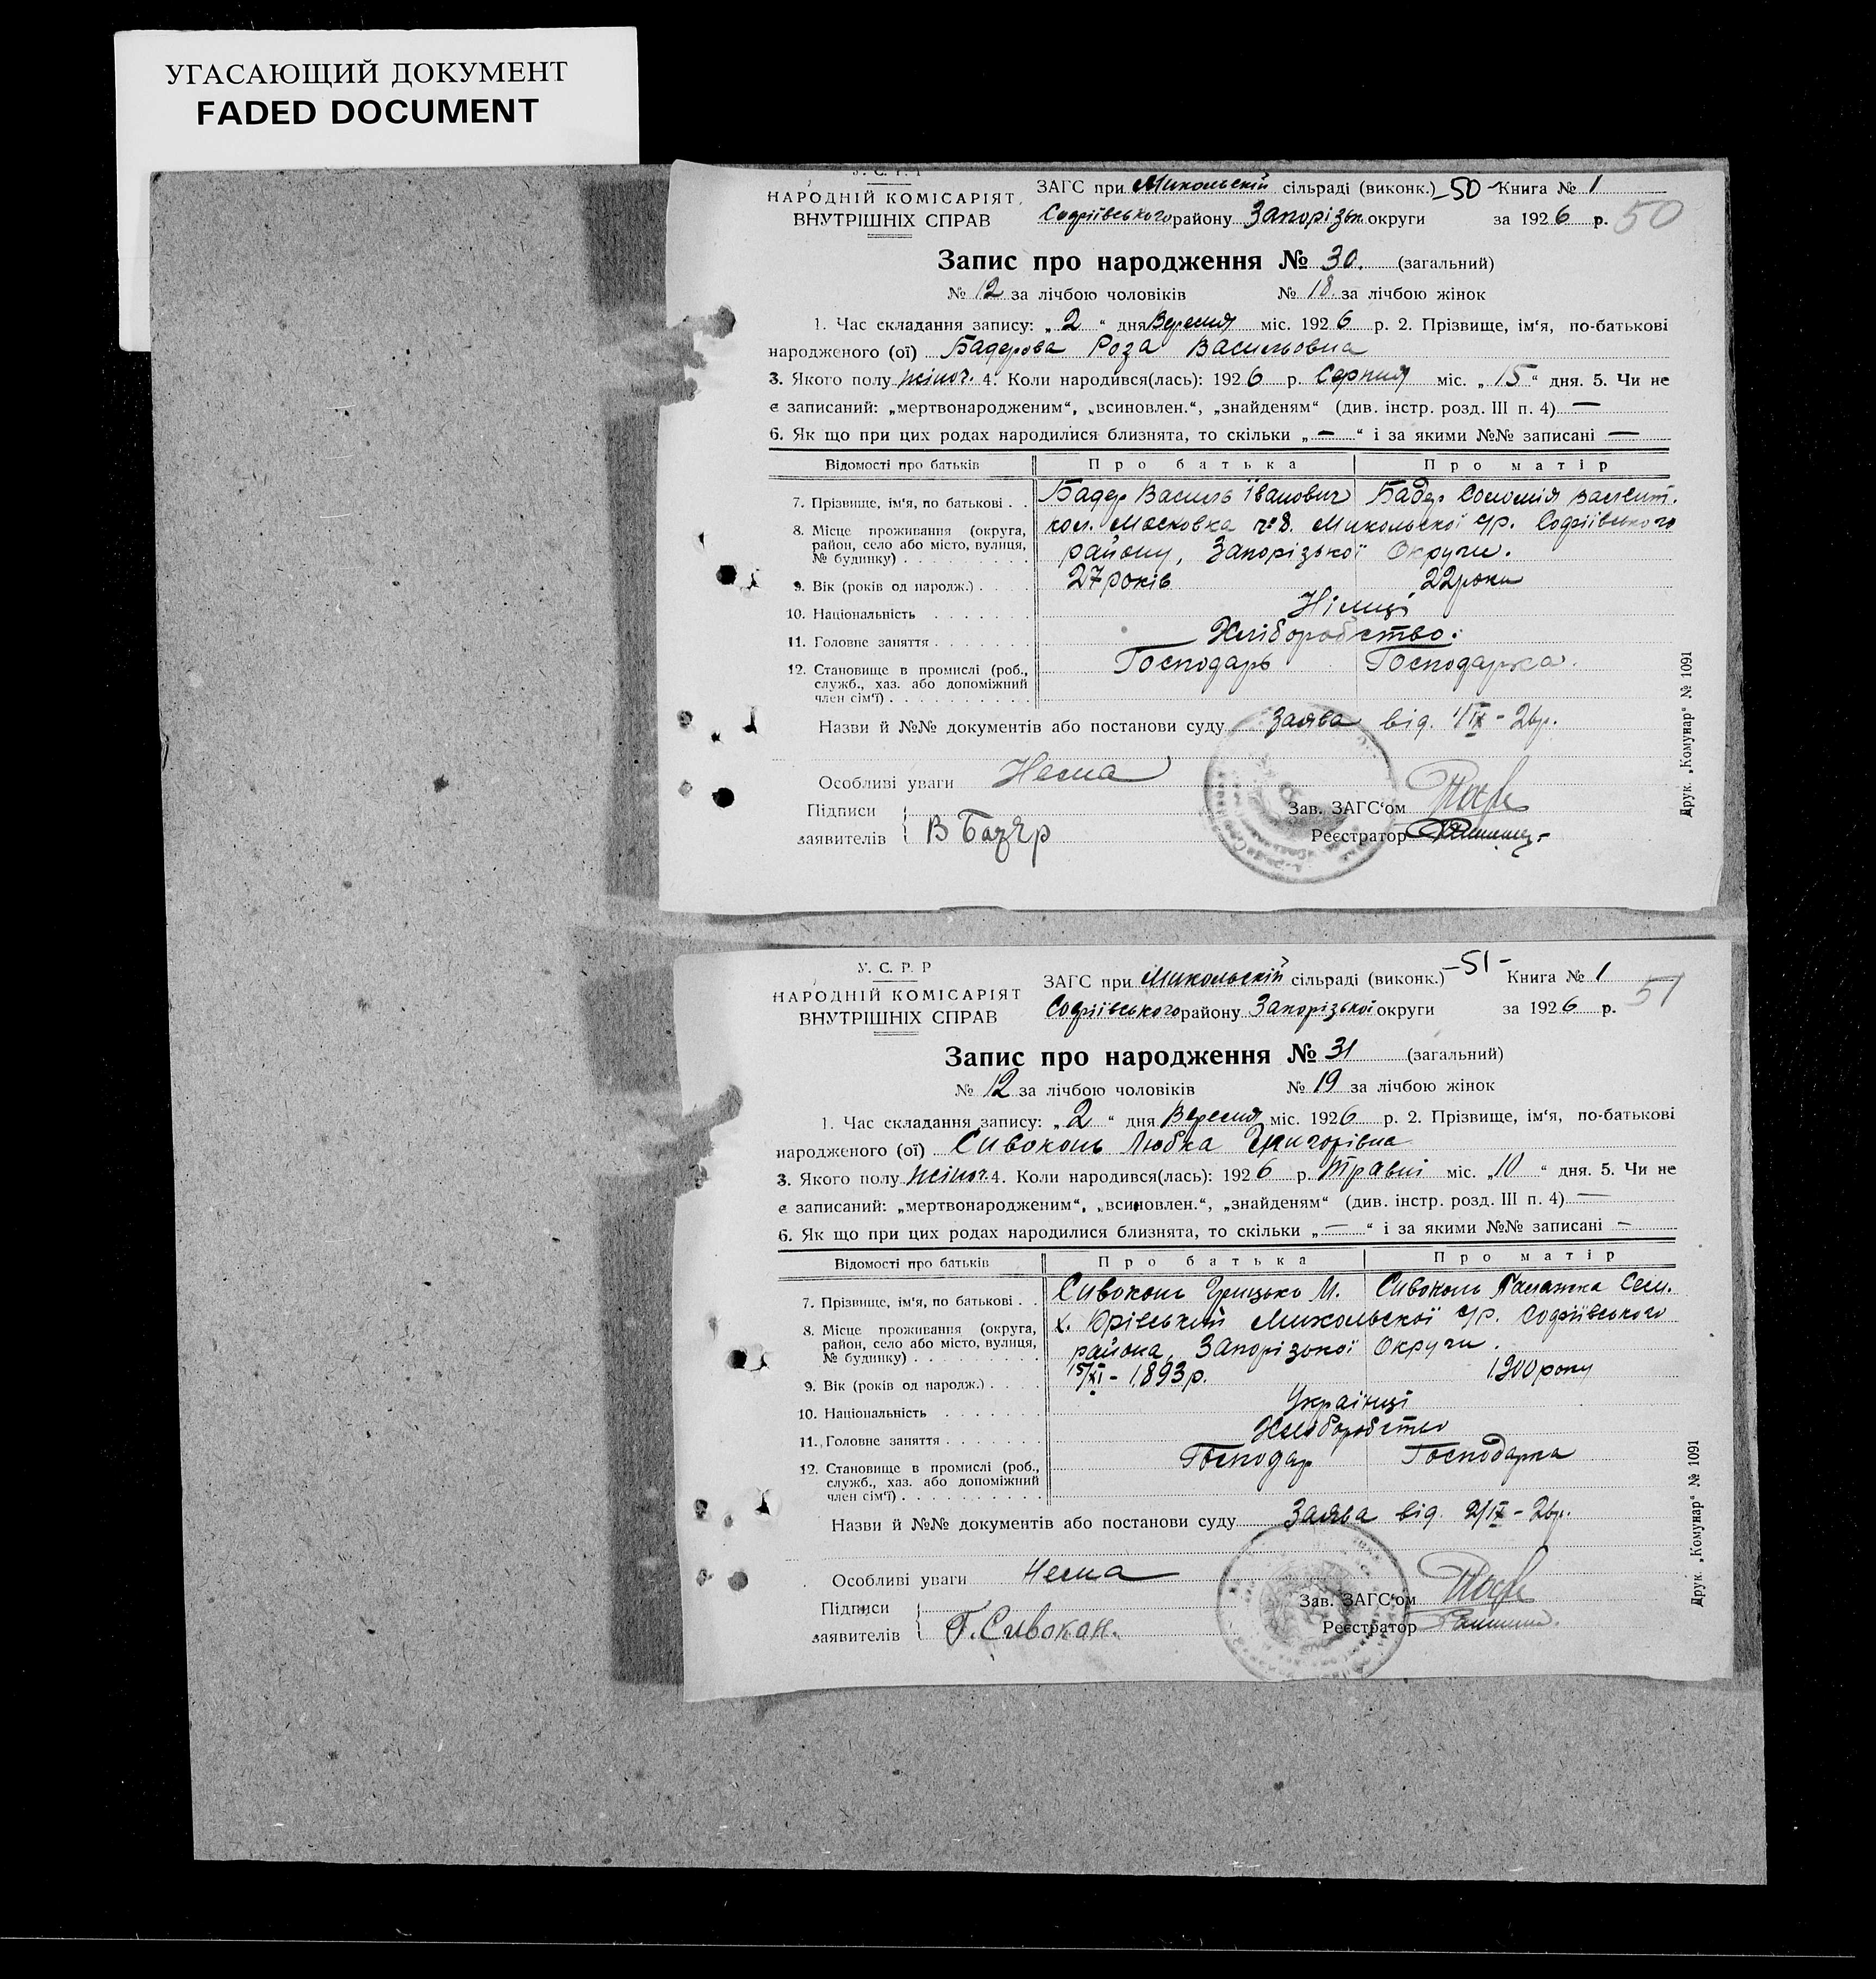 УГАСАЮЩИЙ ДОКУМЕНТ
FADED DOCUMENT
У. С. Р. Р
НАРОДНІЙ КОМІСАРІЯТ
ВНУТРІШНІХ СПРАВ
ЗАГС при Микольскій сільраді (виконк.) -50- Книга № 1
Софіівського району Запорізьк округи за 1926 р. 50
Запис про народження № 30. (загальний)
№ 12 за лічбою чоловіків № 18. за лічбою жінок
1. Час складання запису: „2“ дня Вересня міс. 1926 р. 2. Прізвище, ім‘я, по-батькові
народженого (ої) Бадерова Роза Васильовна
3. Якого полу жіноч. 4. Коли народився(лась): 1926 р. Серпня міс. „15“ дня. 5. Чи не
є записаний: „мертвонародженим“, „всиновлен.“, „знайденям“ (див. інстр. розд. III п. 4) —
6. Як що при цих родах народилися близнята, то скільки „—“ і за якими №№ записані —
Відомості про батьків Про батька Про матір
7. Прізвище, ім‘я, по батькові . . Бадер Василь Іванович Бадер Соломія Валент.
8. Місце проживання (округа, кол. Московка №8. Микольської с/р. Софіівського
район, село або місто, вулиця, району, Запорізької Округи.
№ будинку)
9. Вік (років од народж.) 27 років 22 роки
10. Національність Німці
11. Головне заняття Хліборобство.
12. Становище в промислі (роб., Господарь Господарка.
служб., хаз. або допоміжний
член сім‘ї)
Назви й №№ документів або постанови суду Заява від. 1/IX - 26р.
Особливі уваги Нема
Підписи Зав. ЗАГС‘ом
заявителів В Бадер Реєстратор
Друк. „Комунар“ № 1091
У. С. Р. Р
НАРОДНІЙ КОМІСАРІЯТ
ВНУТРІШНІХ СПРАВ
ЗАГС при Микольскій сільраді (виконк.) -51- Книга № 1
Софіівського району Запорізької округи за 1926 р. 51
Запис про народження № 31 (загальний)
№ 12 за лічбою чоловіків № 19 за лічбою жінок
1. Час складання запису: „2“ дня Вересня міс. 1926 р. 2. Прізвище, ім‘я, по-батькові
народженого (ої) Сивоконь Любка Григорівна
3. Якого полу жіноч. 4. Коли народився(лась): 1926 р. травні міс. „10“ дня. 5. Чи не
є записаний: „мертвонародженим“, „всиновлен.“, „знайденям“ (див. інстр. розд. III п. 4) —
6. Як що при цих родах народилися близнята, то скільки „—“ і за якими №№ записані —
Відомості про батьків Про батька Про матір
7. Прізвище, ім‘я, по батькові . . Сивоконь Грицько М. Сивоконь Палажка Сем.
8. Місце проживання (округа, х. Юрівський Микольської с/р. Софіівського
район, село або місто, вулиця, района, Запорізької Округи.
№ будинку)
9. Вік (років од народж.) 15/XI - 1893р. 1900 року
10. Національність Українці
11. Головне заняття Хліборобство
12. Становище в промислі (роб., Господар Господарка
служб., хаз. або допоміжний
член сім‘ї)
Назви й №№ документів або постанови суду Заява від. 2/IX - 26р.
Особливі уваги Нема
Підписи Зав. ЗАГС‘ом
заявителів Г. Сивокан. Реєстратор
Друк. „Комунар“ № 1091